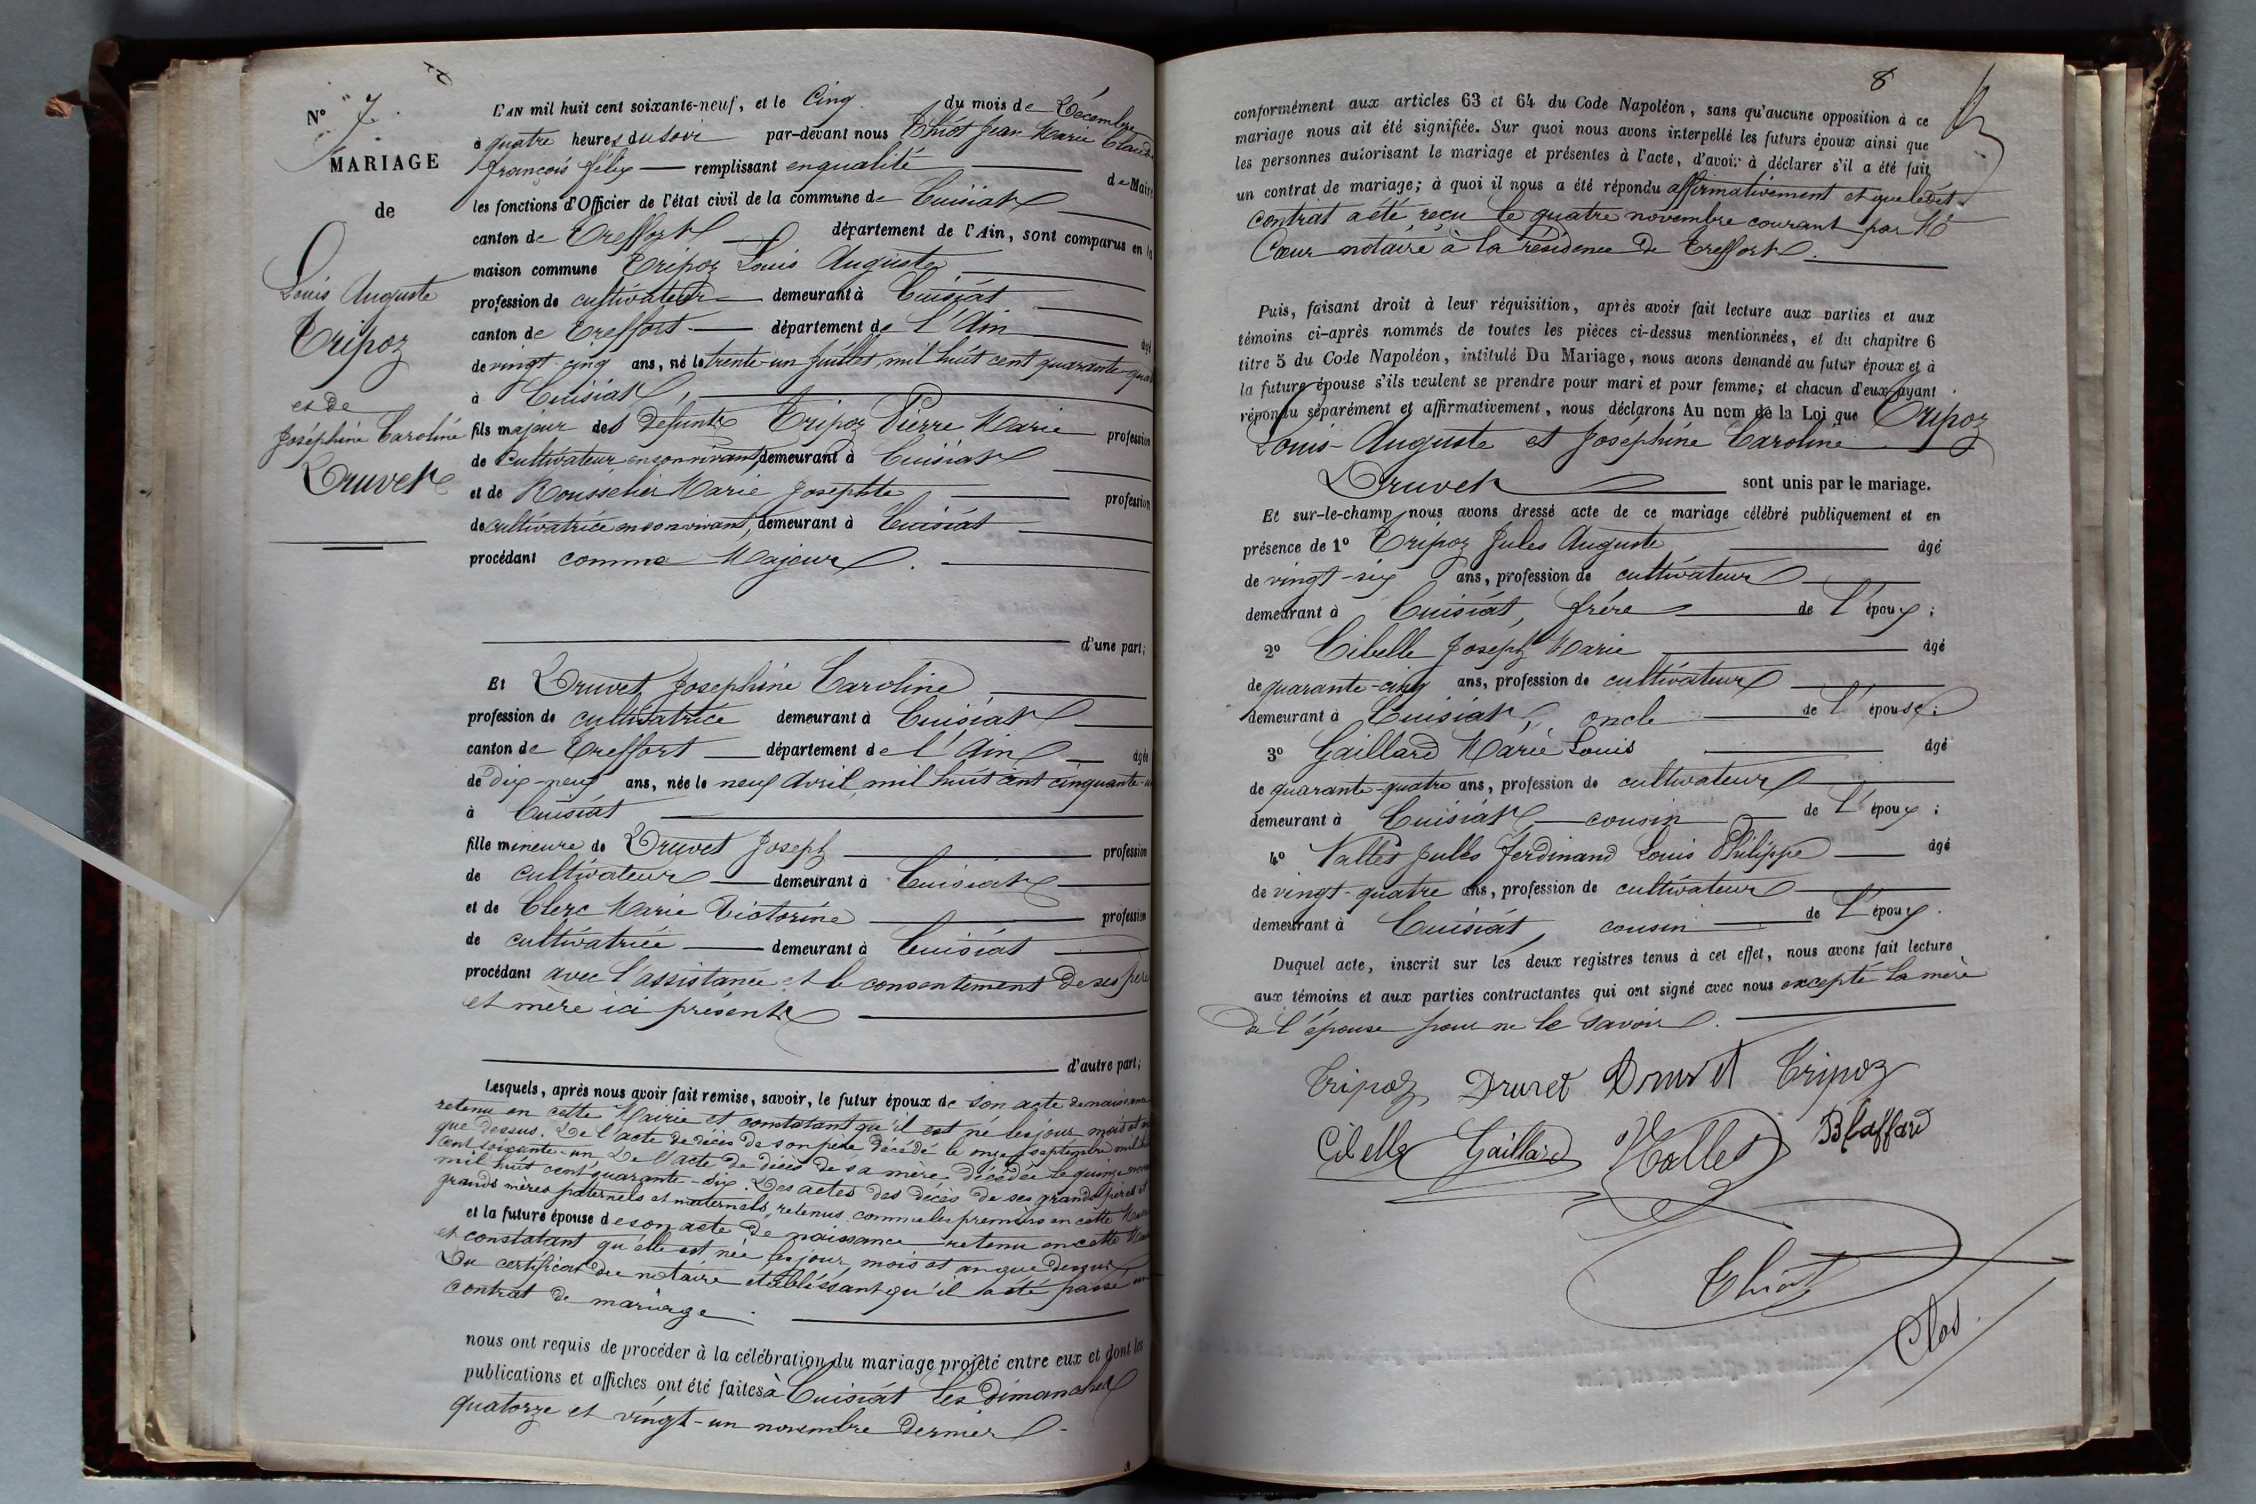 N° 7
MARIAGE
de
Louis Auguste
Tripoz
et de
Joséphine Caroline
Druvet
L'AN mil huit cent soixante-neuf, et le Cinq du mois de Décembre
à quatre heures du soir par-devant nous Thiot Jean Marie Claude
françois félix remplissant en qualité de Maire
les fonctions d'Officier de l'état civil de la commune de Cuisiat
canton de Treffort département de l'Ain, sont comparus en la
maison commune Tripoz Louis Auguste
profession de cultivateur demeurant à Cuisiat
canton de Treffort département de l'Ain âgé
de vingt-cinq ans, né le trente-un Juillet, mil huit cent quarante-quat
à Cuisiat,
fils majeur des défunts Tripoz Pierre Marie profession
de Cultivateur en son vivant, demeurant à Cuisiat
et de Rousselier Marie Josephte profession
de cultivatrice en son vivant, demeurant à Cuisiat
procédant comme Majeur.
d'une part;
Et Druvet Josephine Caroline
profession de cultivatrice demeurant à Cuisiat
canton de Treffort département de l'Ain âgée
de Dix-neuf ans, née le neuf Avril, mil huit cent cinquante
à Cuisiat
fille mineure de Druvet Joseph profession
de cultivateur demeurant à Cuisiat
et de Clerc Marie Victorine profession
de cultivatrice demeurant à Cuisiat
procédant avec l'assistance et le consentement de ses père
et mère ici présents
d'autre part;
Lesquels, après nous avoir fait remise, savoir, le futur époux de son acte de naissance
retenu en cette Mairie et constatant qu'il est né les jour, mois et an
que dessus. De l'acte de décès de son père décédé le onze septembre mil huit
cent soixante-un De l'acte de décès de sa mère décédée le quinze
mil huit cent quarante-six. Des actes des décès de ses grands pères et
grands mères paternels et maternels, retenus comme les premiers en cette Mairie
et la future épouse de son acte de naissance retenu en cette Mairie
et constatant qu'elle est née les jour, mois et an que dessus
Du certificat du notaire établissant qu'il a été passé un
contrat de mariage.
nous ont requis de procéder à la célébration du mariage projeté entre eux et dont les
publications et affiches ont été faites à Cuisiat les dimanches
quatorze et vingt-un novembre dernier.
8
conformément aux articles 63 et 64 du Code Napoléon, sans qu'aucune opposition à ce
mariage nous ait été signifiée. Sur quoi nous avons interpellé les futurs époux ainsi que
les personnes autorisant le mariage et présentes à l'acte, d'avoir à déclarer s'il a été fait
un contrat de mariage; à quoi il nous a été répondu affirmativement et que ledit
contrat a été reçu le quatre novembre courant par Mé
Cœur notaire à la résidence de Treffort.
Puis, faisant droit à leur réquisition, après avoir fait lecture aux parties et aux
témoins ci-après nommés de toutes les pièces ci-dessus mentionnées, et du chapitre 6
titre 5 du Code Napoléon, intitulé Du Mariage, nous avons demandé au futur époux et à
la future épouse s'ils veulent se prendre pour mari et pour femme; et chacun d'eux ayant
répondu séparément et affirmativement, nous déclarons Au nom de la Loi que Tripoz
Louis-Auguste et Joséphine Caroline
Druvet sont unis par le mariage.
Et sur-le-champ nous avons dressé acte de ce mariage célébré publiquement et en
présence de 1° Tripoz Jules Auguste âgé
de vingt-six ans, profession de cultivateur
demeurant à Cuisiat, frère de l'époux;
2° Cibelle Joseph Marie âgé
de quarante-cinq ans, profession de cultivateur
demeurant à Cuisiat, oncle de l'épouse;
3° Gaillard Marie Louis âgé
de quarante-quatre ans, profession de cultivateur
demeurant à Cuisiat, cousin de l'époux;
4° Vallet Jules Ferdinand Louis Philippe âgé
de vingt-quatre ans, profession de cultivateur
demeurant à Cuisiat, cousin de l'époux.
Duquel acte, inscrit sur les deux registres tenus à cet effet, nous avons fait lecture
aux témoins et aux parties contractantes qui ont signé avec nous excepté la mère
de l'épouse pour ne le savoir.
Tripoz Druvet Druvet Tripoz
Cibelle Gaillard Vallet Blaffard
Thiot
Clos.